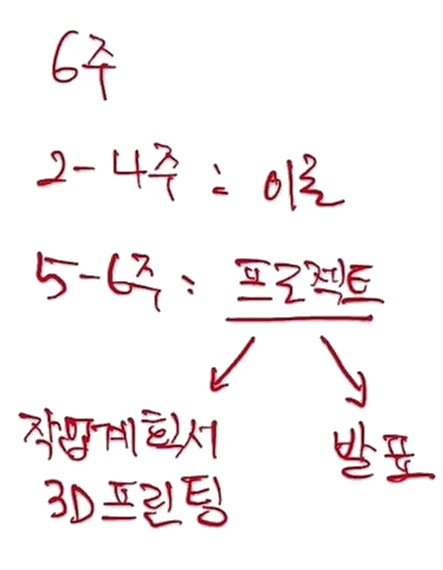 6주
2-4주 : 이론
5-6주 : 프로젝트
작업계획서 발표
3D프린팅